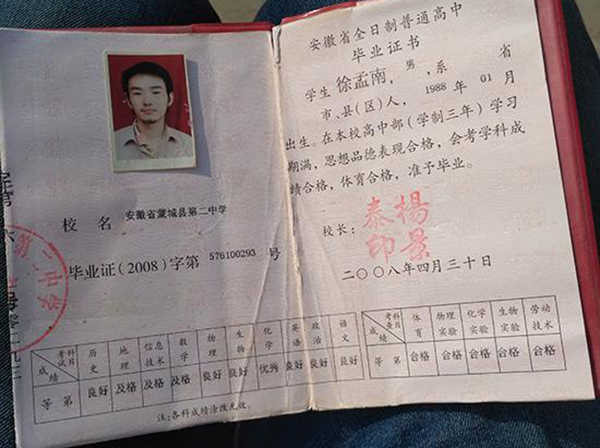 校 名 安徽省蒙城县第二中学
毕业证(2008)字第 576100293 号
考试科目 历史 地理 信息技术 数学 物理 生物 化学 英语 政治 语文
成绩 等第 良好 及格 及格 及格 良好 良好 优秀 良好 良好 良好
注:各科成绩涂改无效。
安徽省全日制普通高中
毕业证书
学生 徐孟南,男,系 省
市、县(区)人, 1988 年 01 月
出生。在本校高中部(学制三年)学习
期满,思想品德表现合格,会考学科成
绩合格,体育合格,准予毕业。
校长: 杨景泰印
二〇〇八年四月三十日
考查科目 体育 物理实验 化学实验 生物实验 劳动技术
成绩 等第 合格 合格 合格 合格 合格